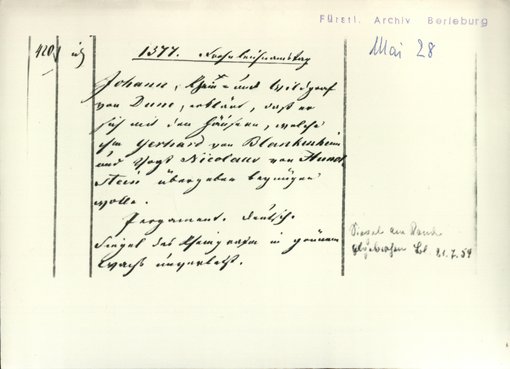 Fürstl. Archiv Berleburg
Mai 28
420.
1377. Frohnleichnamstag
Johann, Rhein- und Wildgraf
von Dune, erklärt, daß er
sich mit den Häusern, welche
ihm Gerhard von Blankenheim
und Vogt Nicolaus von Hunol-
stein übergeben begnügen
wolle.
Pergament. Deutsch.
Siegel des Rheingrafen in grünem
Wachs unverletzt.
Siegel am Rande
abgebrochen 21.7.59